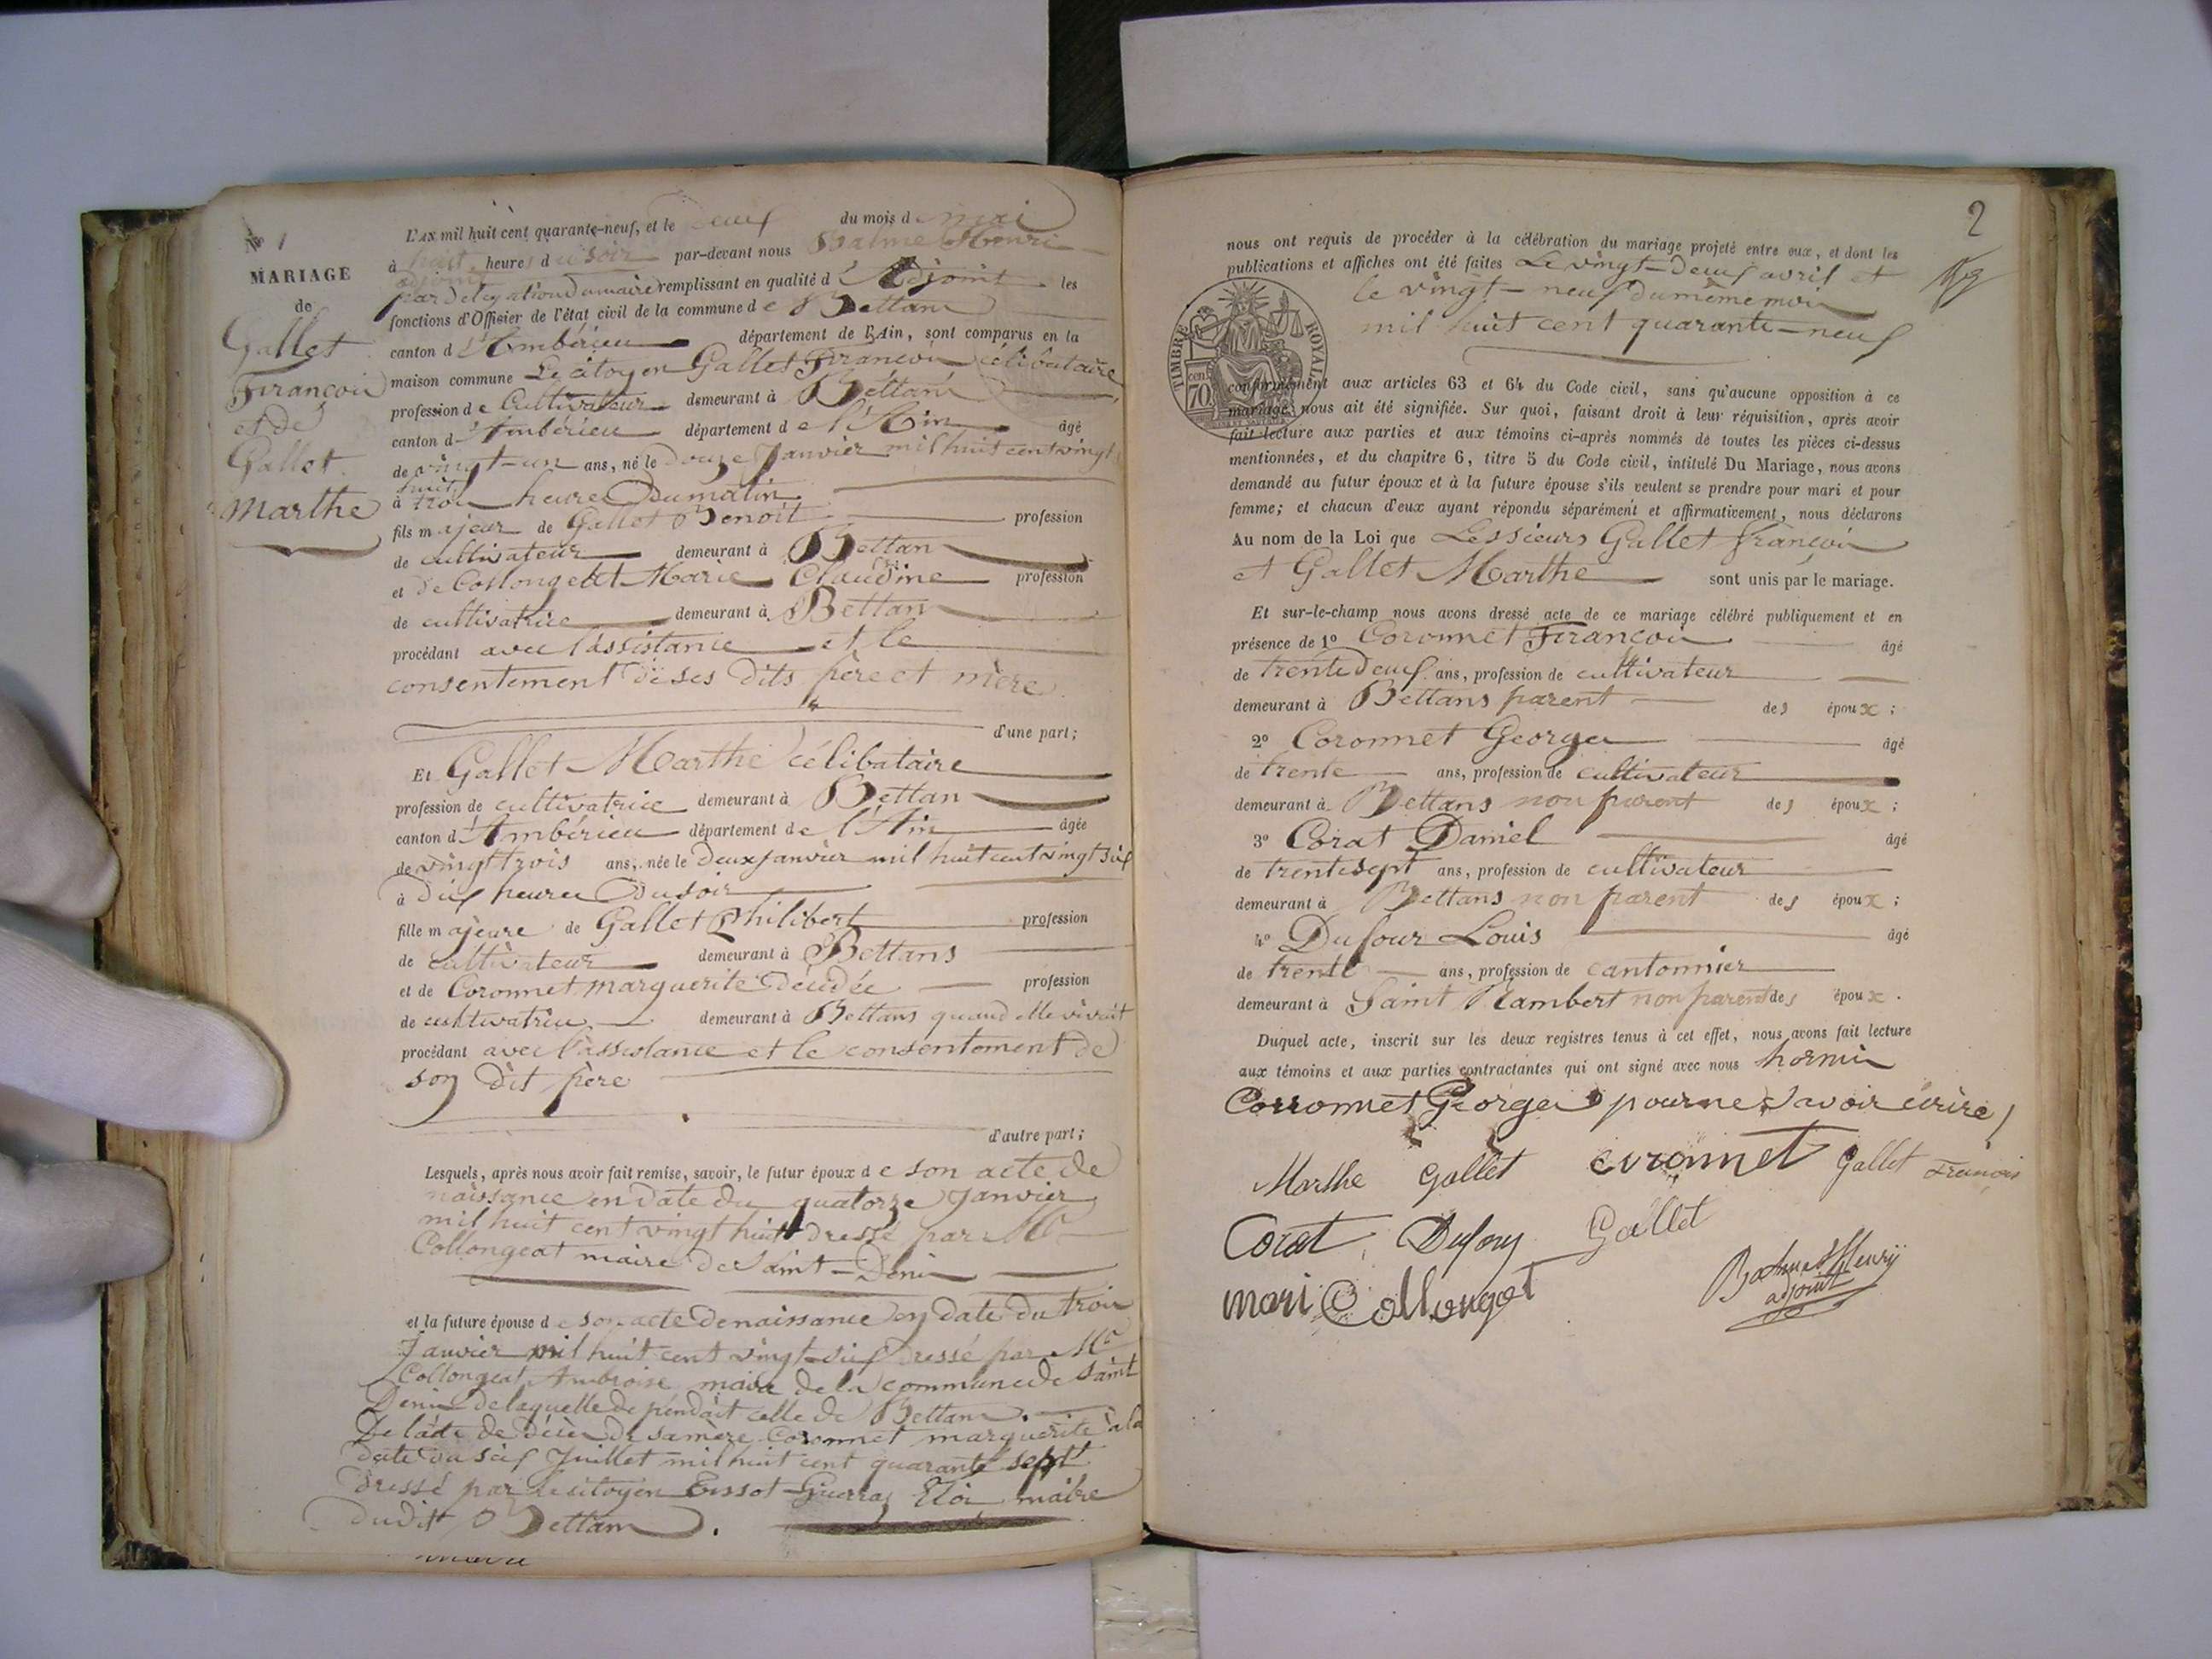 N° 1
MARIAGE
de
Gallet
François
et de
Gallet
Marthe
L'AN mil huit cent quarante-neuf, et le deux du mois de mai
à huit heures du soir par-devant nous Balme Henri
adjoint
par délégation du maire remplissant en qualité d'Adjoint les
fonctions d'Officier de l'état civil de la commune de Bettans
canton d'Ambérieu département de l'Ain, sont comparus en la
maison commune Le citoyen Gallet François célibataire
profession de Cultivateur demeurant à Bettans
canton d'Ambérieu département de l'Ain âgé
de vingt-un ans, né le douze Janvier mil huit cent vingt
huit
à trois heures du matin
fils majeur de Gallet Benoit profession
de cultivateur demeurant à Bettan
et de Collonget Marie Claudine profession
de cultivatrice demeurant à Bettan
procédant avec l'assistance et le
consentement de ses dits père et mère
d'une part;
Et Gallet Marthe célibataire
profession de cultivatrice demeurant à Bettan
canton d'Ambérieu département de l'Ain âgée
de vingt trois ans, née le deux janvier mil huit cent vingt six
à dix heures du soir
fille majeure de Gallet Philibert profession
de cultivateur demeurant à Bettans
et de Coronnet marguerite décédée profession
de cultivatrice demeurant à Bettans quand elle vivait
procédant avec l'assistance et le consentement de
son dit père
d'autre part;
Lesquels, après nous avoir fait remise, savoir, le futur époux de son acte de
naissance en date du quatorze Janvier
mil huit cent vingt huit dressé par Mr
Collongeat maire de Saint-Denis
et la future épouse de son acte de naissance en date du trois
Janvier mil huit cent vingt-six dressé par Mr
Collongeat Ambroise maire de la commune de Saint
Denis de laquelle dépendait celle de Bettans.
De l'acte de décès de sa mère Coronnet marguerite à la
date du six Juillet mil huit cent quarante sept
dressé par le citoyen Eloi maire
dudit Bettans.
2
nous ont requis de procéder à la célébration du mariage projeté entre eux, et dont les
publications et affiches ont été faites Le vingt-deux avril et
le vingt-neuf du même mois
mil huit cent quarante-neuf
TIMBRE ROYAL
70 cent
conformément aux articles 63 et 64 du Code civil, sans qu'aucune opposition à ce
mariage nous ait été signifiée. Sur quoi, faisant droit à leur réquisition, après avoir
fait lecture aux parties et aux témoins ci-après nommés de toutes les pièces ci-dessus
mentionnées, et du chapitre 6, titre 5 du Code civil, intitulé Du Mariage, nous avons
demandé au futur époux et à la future épouse s'ils veulent se prendre pour mari et pour
femme; et chacun d'eux ayant répondu séparément et affirmativement, nous déclarons
Au nom de la Loi que Les sieurs Gallet françois
et Gallet Marthe sont unis par le mariage.
Et sur-le-champ nous avons dressé acte de ce mariage célébré publiquement et en
présence de 1° Coronnet François âgé
de trente deux ans, profession de cultivateur
demeurant à Bettans parent des époux;
2° Coronnet Georges âgé
de trente ans, profession de cultivateur
demeurant à Bettans non parent des époux;
3° Corat Daniel âgé
de trente sept ans, profession de cultivateur
demeurant à Bettans non parent des époux;
4° Dufour Louis âgé
de trente ans, profession de cantonnier
demeurant à Saint Rambert non parent des époux.
Duquel acte, inscrit sur les deux registres tenus à cet effet, nous avons fait lecture
aux témoins et aux parties contractantes qui ont signé avec nous hormis
Corronnet Georges pour ne savoir écrire
Marthe Gallet coronnet Gallet François
Corat Dufour Gallet
mari Collonget Balme Henry
adjoint